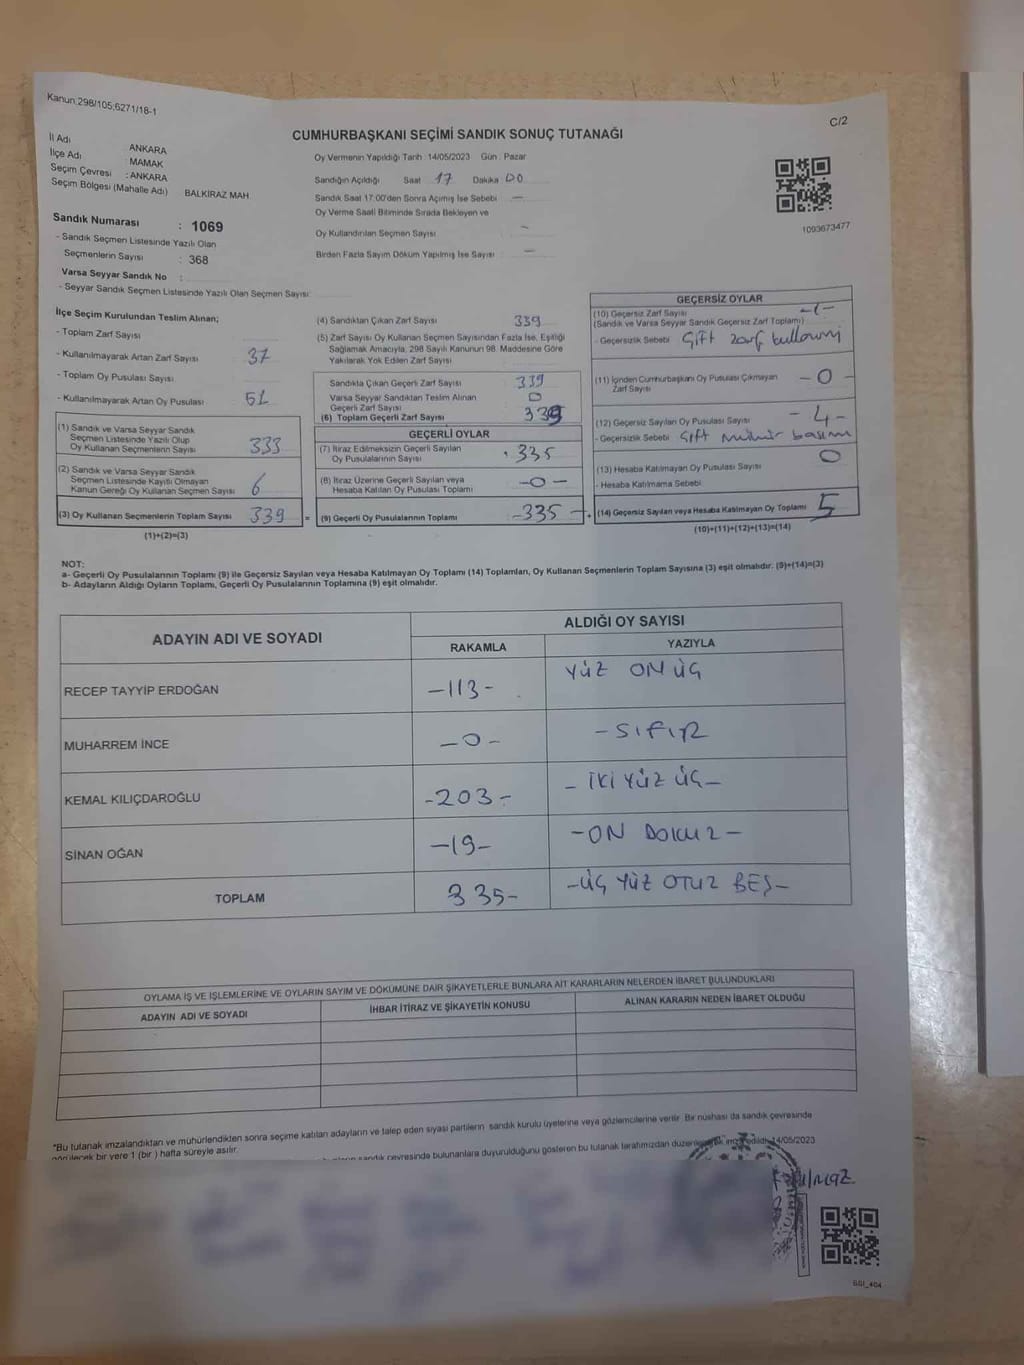 Kanun:298/105;6271/18-1
C/2
CUMHURBAŞKANI SEÇİMİ SANDIK SONUÇ TUTANAĞI
İl Adı ANKARA
İlçe Adı MAMAK
Seçim Çevresi : ANKARA
Seçim Bölgesi (Mahalle Adı) BALKİRAZ MAH
Oy Vermenin Yapıldığı Tarih : 14/05/2023 Gün : Pazar
Sandığın Açıldığı Saat 17 Dakika 00
Sandık Saat 17:00'den Sonra Açılmış İse Sebebi —
Oy Verme Saati Bitiminde Sırada Bekleyen ve
Oy Kullandırılan Seçmen Sayısı —
Birden Fazla Sayım Döküm Yapılmış İse Sayısı —
1093673477
Sandık Numarası : 1069
- Sandık Seçmen Listesinde Yazılı Olan
Seçmenlerin Sayısı : 368
Varsa Seyyar Sandık No :
- Seyyar Sandık Seçmen Listesinde Yazılı Olan Seçmen Sayısı:
İlçe Seçim Kurulundan Teslim Alınan;
- Toplam Zarf Sayısı
- Kullanılmayarak Artan Zarf Sayısı 37
- Toplam Oy Pusulası Sayısı
- Kullanılmayarak Artan Oy Pusulası 51
(1) Sandık ve Varsa Seyyar Sandık
Seçmen Listesinde Yazılı Olup
Oy Kullanan Seçmenlerin Sayısı 333
(2) Sandık ve Varsa Seyyar Sandık
Seçmen Listesinde Kayıtlı Olmayan
Kanun Gereği Oy Kullanan Seçmen Sayısı 6
(3) Oy Kullanan Seçmenlerin Toplam Sayısı 339 =
(1)+(2)=(3)
(4) Sandıktan Çıkan Zarf Sayısı 339
(5) Zarf Sayısı Oy Kullanan Seçmen Sayısından Fazla İse, Eşitliği
Sağlamak Amacıyla, 298 Sayılı Kanunun 98. Maddesine Göre
Yakılarak Yok Edilen Zarf Sayısı
Sandıkta Çıkan Geçerli Zarf Sayısı 339
Varsa Seyyar Sandıktan Teslim Alınan
Geçerli Zarf Sayısı 0
(6) Toplam Geçerli Zarf Sayısı 339
GEÇERLİ OYLAR
(7) İtiraz Edilmeksizin Geçerli Sayılan
Oy Pusulalarının Sayısı 335
(8) İtiraz Üzerine Geçerli Sayılan veya
Hesaba Katılan Oy Pusulası Toplamı -0-
(9) Geçerli Oy Pusulalarının Toplamı -335- +
GEÇERSİZ OYLAR
(10) Geçersiz Zarf Sayısı -1-
(Sandık ve Varsa Seyyar Sandık Geçersiz Zarf Toplamı)
- Geçersizlik Sebebi Çift zarf kullanımı
(11) İçinden Cumhurbaşkanı Oy Pusulası Çıkmayan
Zarf Sayısı -0-
(12) Geçersiz Sayılan Oy Pusulası Sayısı -4-
- Geçersizlik Sebebi Çift mühür basımı
(13) Hesaba Katılmayan Oy Pusulası Sayısı 0
- Hesaba Katılmama Sebebi
(14) Geçersiz Sayılan veya Hesaba Katılmayan Oy Toplamı 5
(10)+(11)+(12)+(13)=(14)
NOT:
a- Geçerli Oy Pusulalarının Toplamı (9) ile Geçersiz Sayılan veya Hesaba Katılmayan Oy Toplamı (14) Toplamları, Oy Kullanan Seçmenlerin Toplam Sayısına (3) eşit olmalıdır. (9)+(14)=(3)
b- Adayların Aldığı Oyların Toplamı, Geçerli Oy Pusulalarının Toplamına (9) eşit olmalıdır.
ADAYIN ADI VE SOYADI
ALDIĞI OY SAYISI
RAKAMLA YAZIYLA
RECEP TAYYİP ERDOĞAN -113- YÜZ ON ÜÇ
MUHARREM İNCE -0- -SIFIR
KEMAL KILIÇDAROĞLU -203- -İKİ YÜZ ÜÇ-
SİNAN OĞAN -19- -ON DOKUZ-
TOPLAM 335- -ÜÇ YÜZ OTUZ BEŞ-
OYLAMA İŞ VE İŞLEMLERİNE VE OYLARIN SAYIM VE DÖKÜMÜNE DAİR ŞİKAYETLERLE BUNLARA AİT KARARLARIN NELERDEN İBARET BULUNDUKLARI
ADAYIN ADI VE SOYADI İHBAR İTİRAZ VE ŞİKAYETİN KONUSU ALINAN KARARIN NEDEN İBARET OLDUĞU
*Bu tutanak imzalandıktan ve mühürlendikten sonra seçime katılan adayların ve talep eden siyasi partilerin sandık kurulu üyelerine veya gözlemcilerine verilir. Bir nüshası da sandık çevresinde
görülecek bir yere 1 (bir ) hafta süreyle asılır.
sandık çevresinde bulunanlara duyurulduğunu gösteren bu tutanak tarafımızdan 14/05/2023